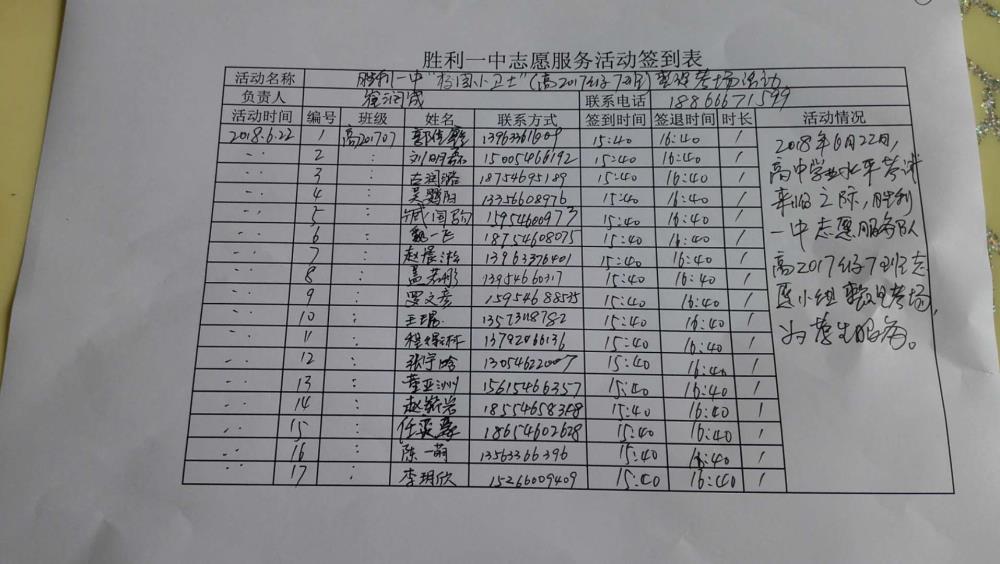 胜利一中志愿服务活动签到表
活动名称 胜利一中"校园小卫士"(高2017级7班)整理考场活动
负责人 崔润成 联系电话 18866671599
活动时间 编号 班级 姓名 联系方式 签到时间 签退时间 时长 活动情况
2018.6.22 1 高201707 15:40 16:40 1
〃 2 : 刘明磊 15005466192 15:40 16:40 1
〃 3 : 18754695189 15:40 16:40 1
〃 4 : 13356608976 15:40 16:40 1
〃 5 : 15954600973 15:40 16:40 1
〃 6 : 魏一飞 18754608075 15:40 16:40 1
〃 7 : 13963376401 15:40 16:40 1
〃 8 : 13954660317 15:40 16:40 1
〃 9 : 罗文彦 15954688535 15:40 16:40 1
〃 10 : 王瑞 13573118782 15:40 16:40 1
〃 11 : 13792066136 15:40 16:40 1
〃 12 : 张宇晗 13054622007 15:40 16:40 1
〃 13 : 董亚洲 15615466357 15:40 16:40 1
〃 14 : 赵新岩 18554658348 15:40 16:40 1
〃 15 : 18654602628 15:40 16:40 1
〃 16 : 陈一萌 13563366396 15:40 16:40 1
〃 17 : 李玥欣 15266009409 15:40 16:40 1
2018年6月22日,
高中学业水平考试
来临之际,胜利
一中志愿服务队
高2017级7班志
愿小组整理考场,
为考生服务。